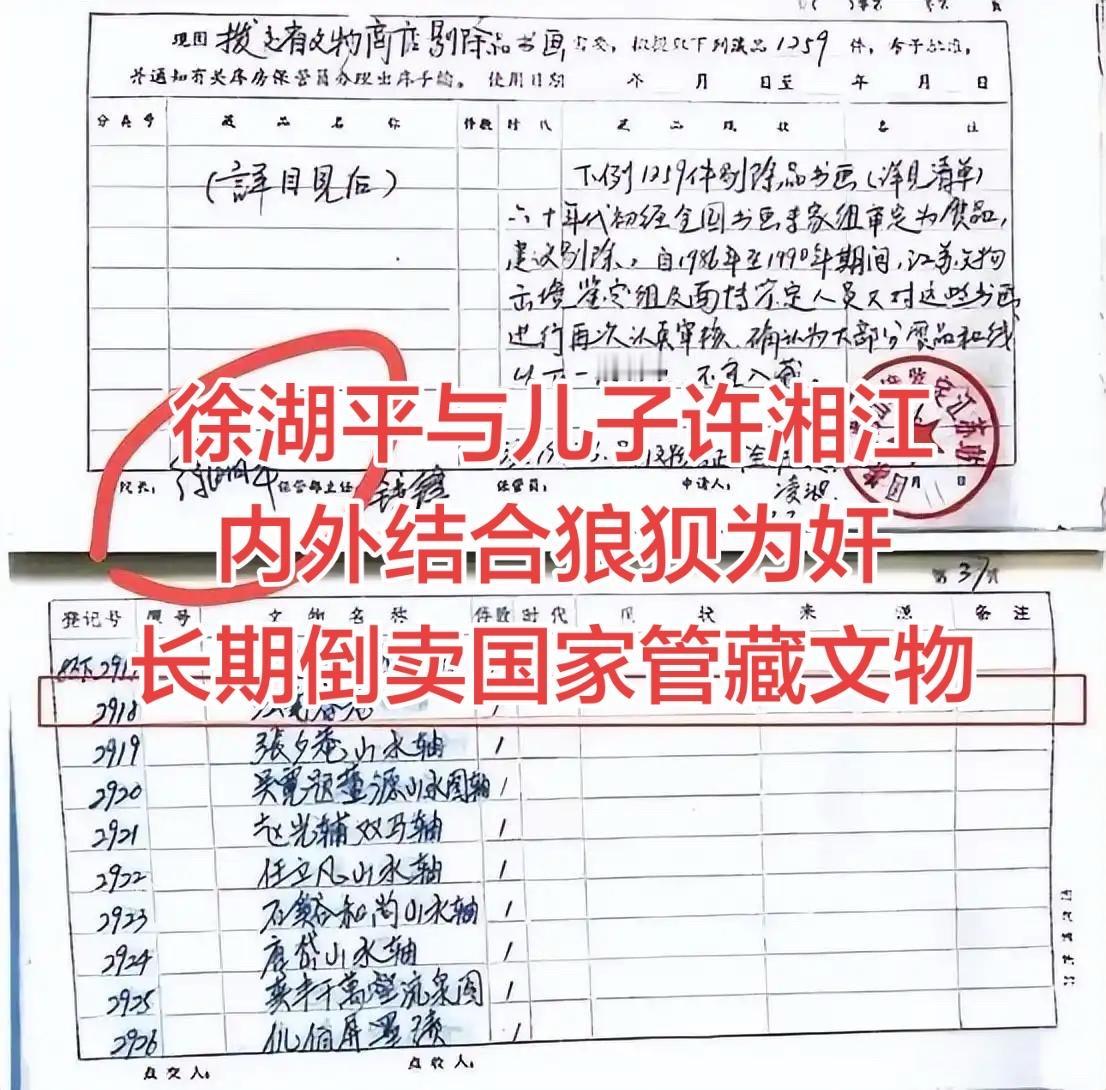 现因 拨交省文物商店剔除品书画 需要，拟提取下列藏品 1259 件，希予批准，
并通知有关库房保管员办理出库手续。 使用日期 年 月 日至 年 月 日
分类号 藏品名称 件数 时代 藏品现状 备注
（詳目見后）
下例1259件剔除品书画（详見清单）
六十年代初经全国书画专家组审定为贋品，
建议剔除。自1986年至1990年期间，江苏文物
出境鉴定组及
进行再次认真审核，确认为大部分贋品和
不宜入藏。
徐湖平与儿子许湘江
院长： 徐湖平 保管部主任： 钱锋 经管员： 申请人： 凌波
内外结合狼狈为奸
第37页
登记号 原号 文物名称 件数 时代 现状 来源 备注
长期倒卖国家管藏文物
2918
2919 張夕菴山水轴 1
2920 吴寬题董源山水图轴 1
2921 赵光辅双马轴 1
2922 任立凡山水轴 1
2923 石谿和尚山水轴 1
2924 唐岱山水轴 1
2925 奚丰千萬壑流泉图 1
2926 仇伯屏墨 1
点交人： 点收人：